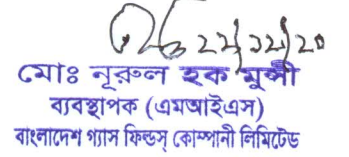 22/12/20
মোঃ নূরুল হক মুন্সী
ব্যবস্থাপক (এমআইএস)
বাংলাদেশ গ্যাস ফিল্ডস্ কোম্পানী লিমিটেড